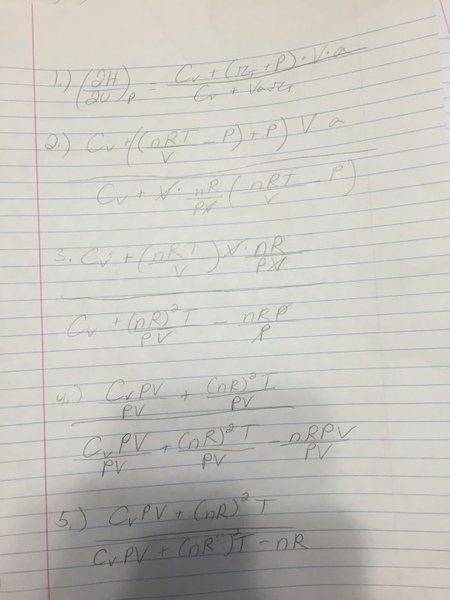 1.) (∂H/∂U)_P = (C_v + (π_T + P) · V · a) / (C_v + Vaπ_T)
2.) C_v + ((nRT/V - P) + P) V a
C_v + V · nR/PV (nRT/V - P)
3. C_v + (nRT/V) V · nR/PV
C_v + (nR)²T/PV - nRP/P
4.) C_vPV/PV + (nR)²T/PV
C_vPV/PV + (nR)²T/PV - nRPV/PV
5.) C_vPV + (nR)²T
C_vPV + (nR)²T - nR